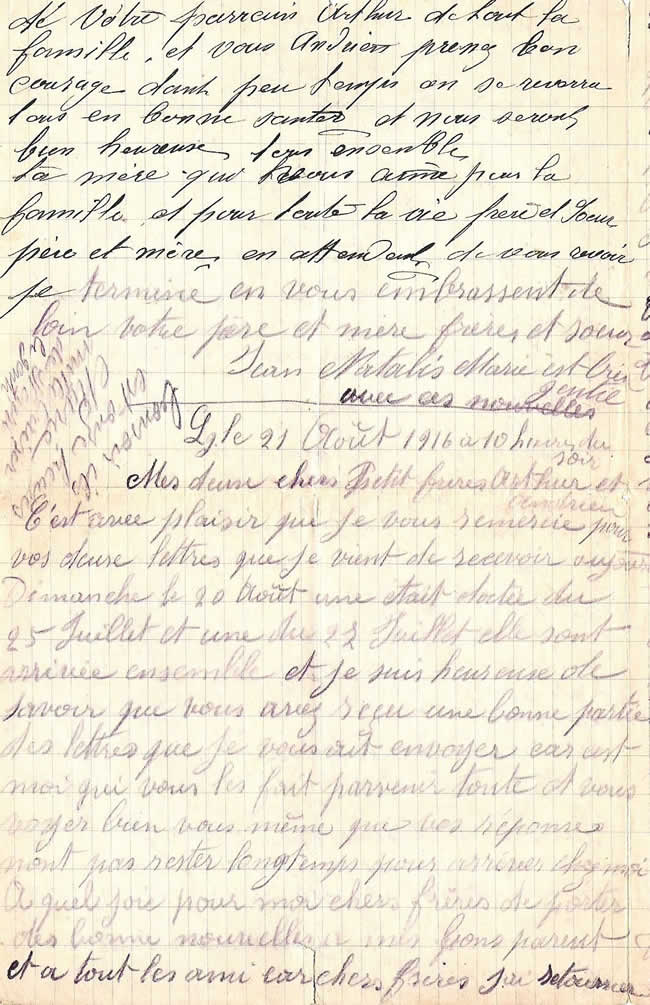 de Votre parrain Arthur de tout la
famille, et vous Andrien prenez bon
courage dant peu temps on se reverra
tous en bonne santer et nous serons
bien heureuse tous ensemble
La mère qui vous aime pour la
famille et pour toute la vie frere et soeur
père et mère, en attendent de vous revoir
je terminé en vous embrassent de
loin votre père et mère frères et soeur
Jean Natalis Marie est
avec ces nouvelles
le 21 Août 1916 a 10 heures du
soir
Mes deuse chers Petit freres Arthur et
Andrien
C'est avec plaisir que je vous remercie pour
vos deuse lettres que je vient de recevoir
Dimanche le 20 Août une était datée du
25 Juillet et une du 22 Juillet elle sont
arrivée ensemble et je suis heureuse de
savoir que vous avez reçu une bonne partie
des lettres que je vous ait envoyer car cest
moi qui vous les fait parvenir toute et vous
voyer bien vous même que vos réponses
nont pas rester longtemps pour arrivée chez moi
A quel joie pour moi chers frères de porter
des bonne nouvelles a mes bons parent
et a tout les ami car chers frères j'ai retourner